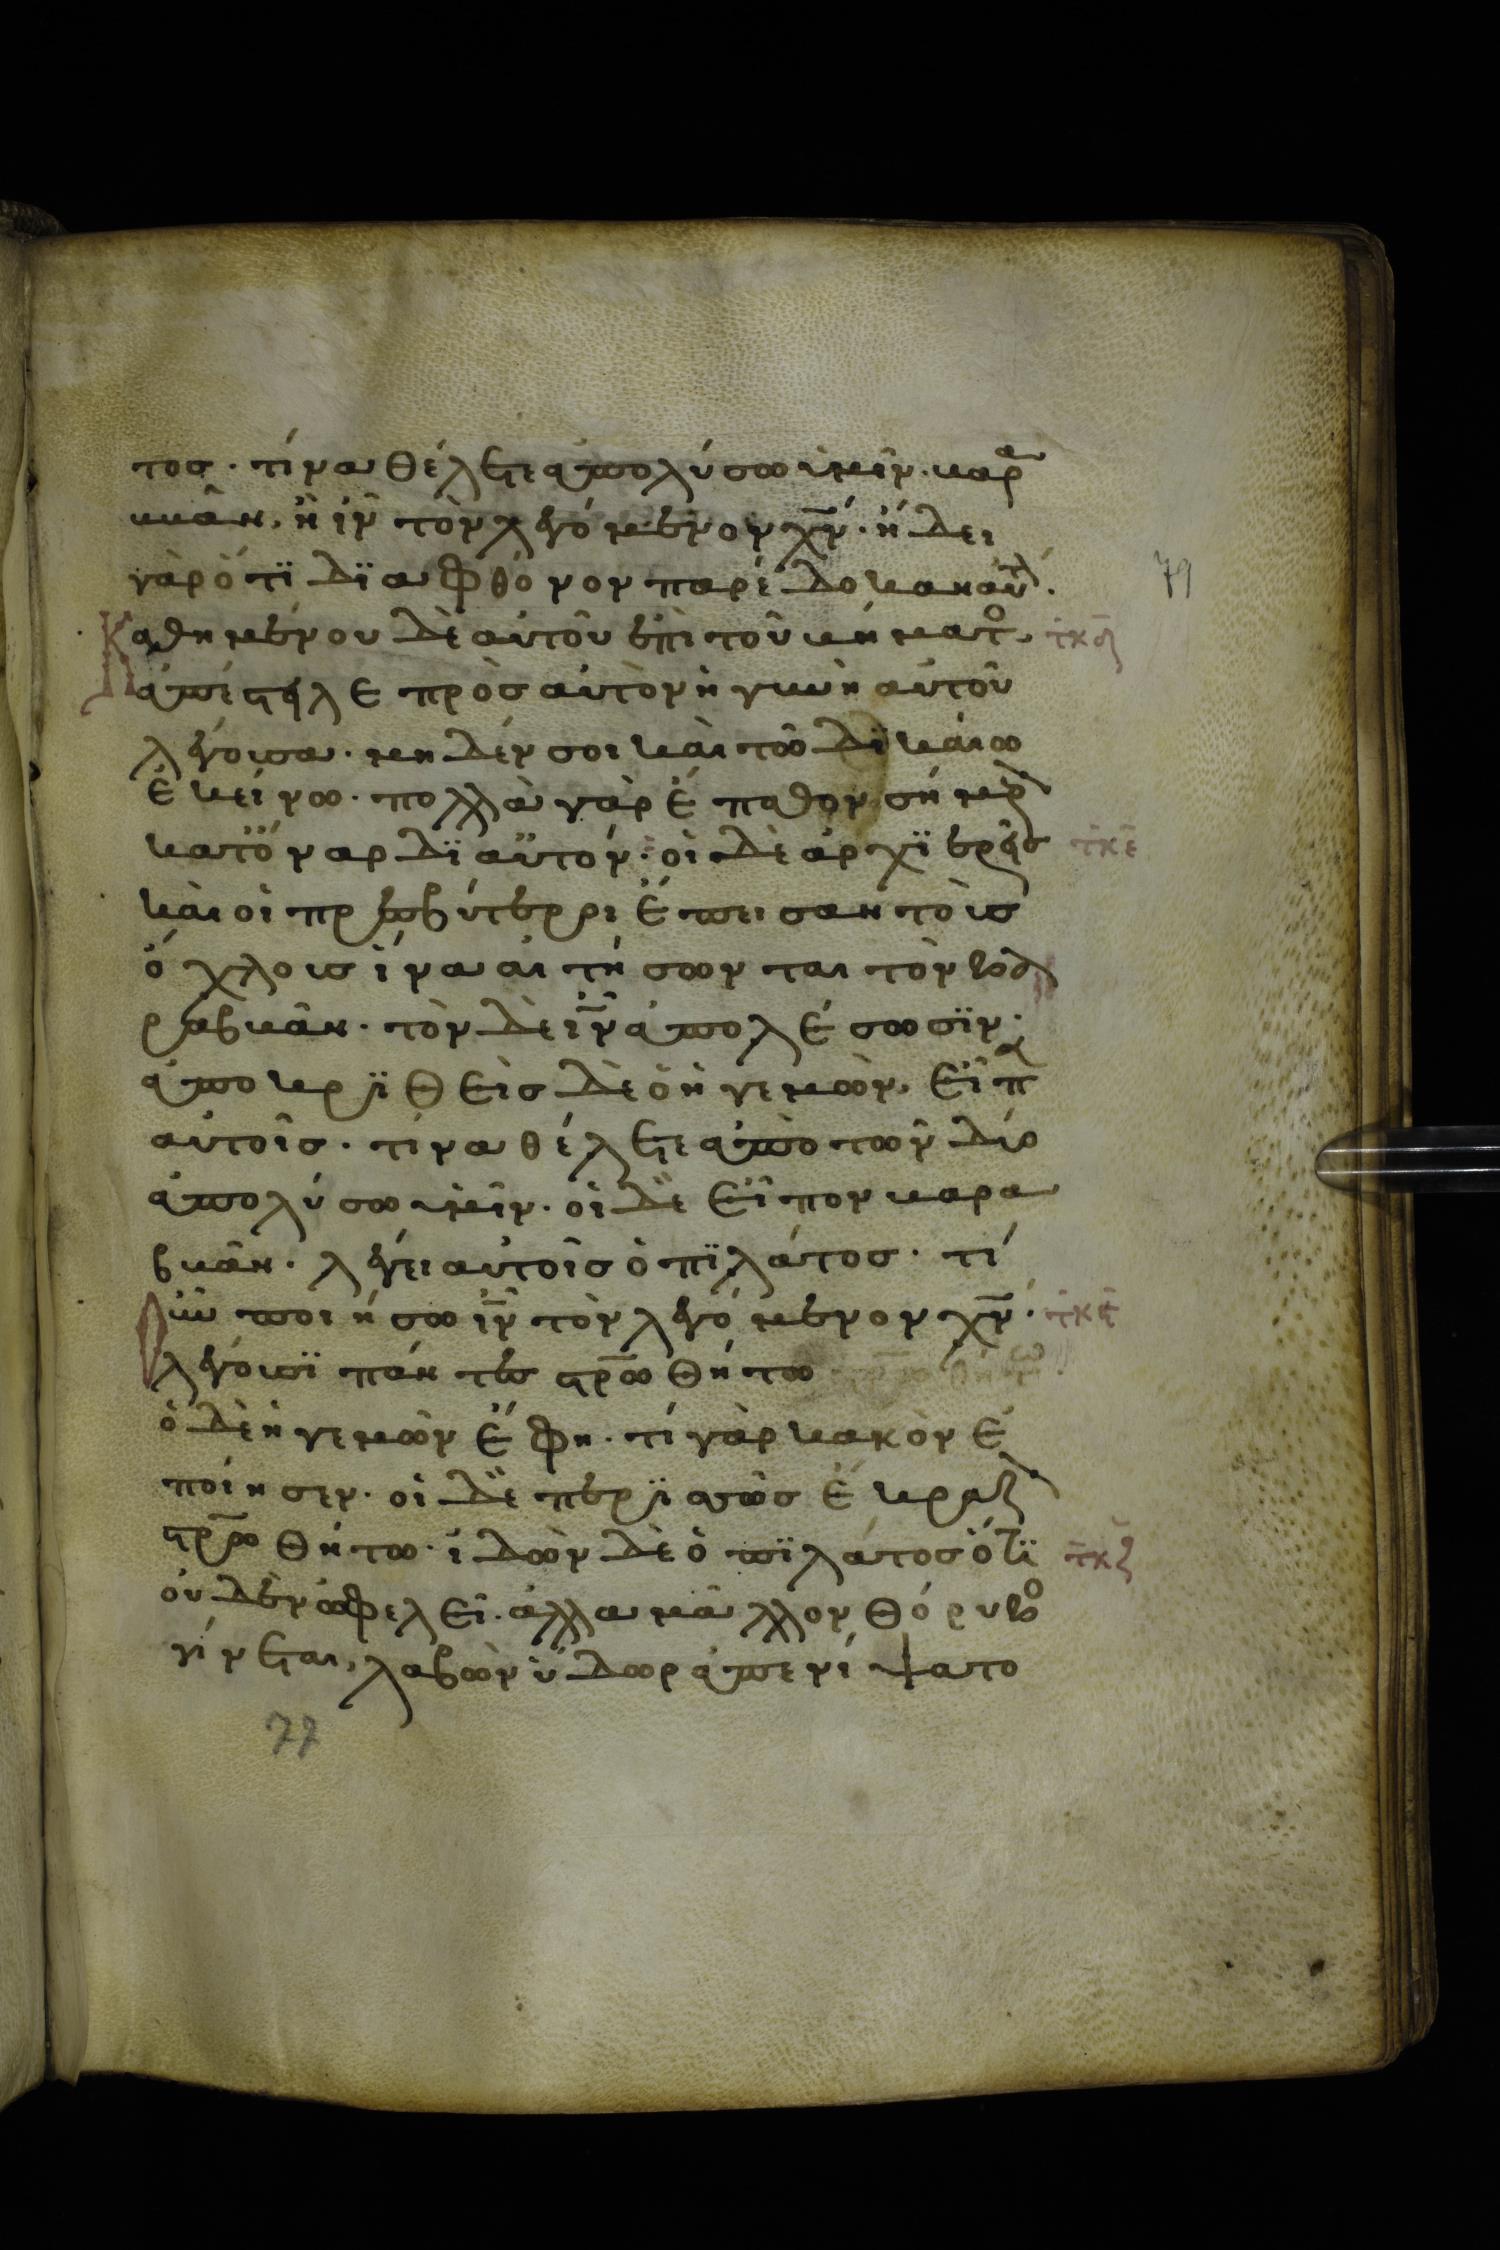 τος· τίνα θέλετε ἀπολύσω ὑμῖν· βαρα
ββᾶν, ἢ ἰν τὸν λεγόμενον χν· ἤδει
γὰρ ὅτϊ δϊα φθόνον παρέδοκαν αὐτ·
Καθημένου δὲ αὐτοῦ ἐπὶ τοῦ βήματο τκδ
ἀπέστηλε πρὸς αὐτὸν ἡ γυνὴ αὐτοῦ
λέγουσα· μηδέν σοι καὶ τῶ δϊκάιω
ἐκείνω· πολλὰ γὰρ ἔπαθον σήμερ
κατ ὄναρ δϊ αὐτόν· οἱ δὲ ἀρχϊερεῖς τκε
καὶ οἱ πρεσβύτεροι ἔπεισαν τοὶς
ὄχλοις ἵνα αἰτήσωνται τὸν βα
ραββᾶν· τὸν δὲ ιν ἀπολέσωσϊν·
ἀποκρϊθεὶς δὲ ὁ ἡγεμὼν, εἶπ
αὐτοῖς· τίνα θέλετε ἀπὸ τῶν δύο
ἀπολύσω ὑμῖν· οἱ δὲ εἶπον βαρα
ββᾶν· λέγει αὐτοῖς ὁ πϊλάτος· τί
οὖν ποιήσω ιν τὸν λεγόμενον χν· τκϛ
λέγουσϊ πάντες στρωθήτω
ὁ δὲ ἡγεμὼν ἔφη· τί γὰρ κακὸν ἐ
ποίησεν· οἱ δὲ περϊσσῶς ἔκραζ
στρωθήτω· ἰδὼν δὲ ὁ πϊλάτος ὅτϊ τκζ
οὐδὲν ὠφελεῖ· ἀλλα μᾶλλον θόρυβο
γίνεται, λαβὼν ὕδωρ ἀπενίψατο
79
77